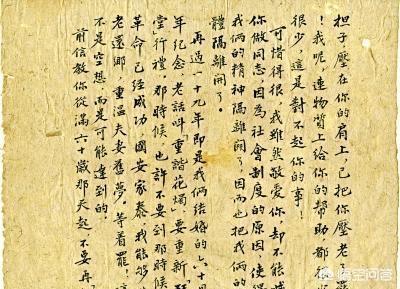 担子壓在你的肩上,已把你壓老
!我呢,連物質上給你的帮助,都
很少,這是對不起你的事!
可惜得很,我雖然敬愛你,却不能
你做同志,因為社會制度的原因,使
我倆的精神隔離開了,因而也把我倆的
體隔離開了。
再過一十九年,即是我倆結婚的六十
年紀念,老話叫「重諧花燭」,要重新「
堂」行禮。那時候,也許不要到那時候
革命已經成功,國安家泰,我能够
老還鄉,重溫夫妻舊夢。等着罷,這
不是空想,而是可能達到的。
前信教你從滿六十歲那天起,不要再
悟空问答